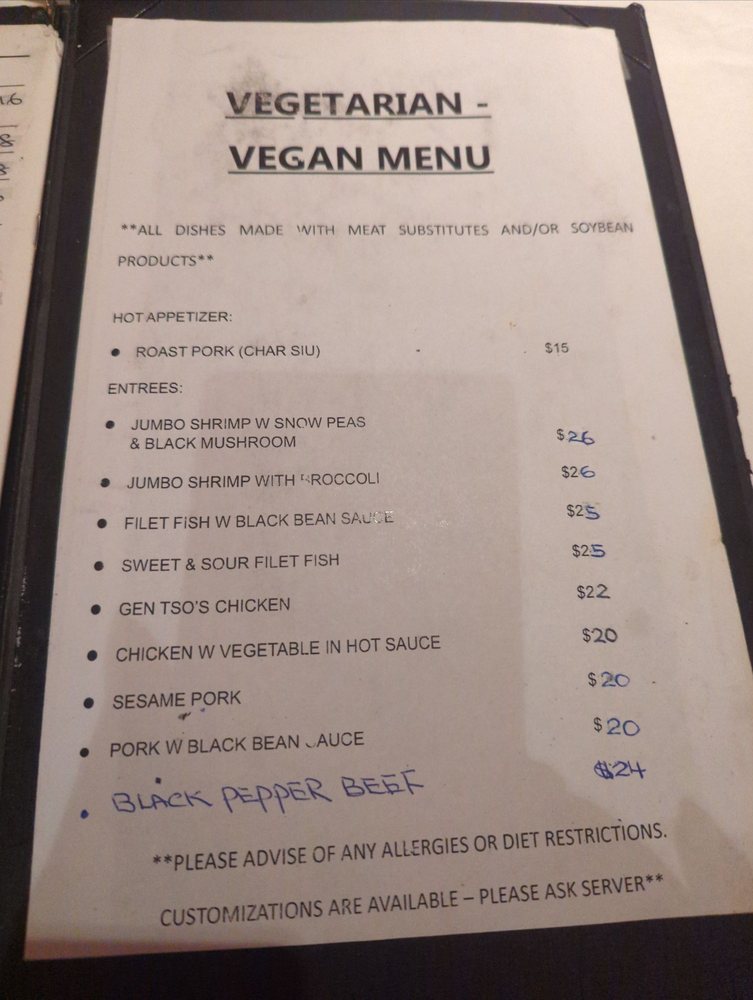 16
8
8
VEGETARIAN -
VEGAN MENU
**ALL DISHES MADE WITH MEAT SUBSTITUTES AND/OR SOYBEAN
PRODUCTS**
HOT APPETIZER:
• ROAST PORK (CHAR SIU) $15
ENTREES:
• JUMBO SHRIMP W SNOW PEAS
& BLACK MUSHROOM $26
• JUMBO SHRIMP WITH BROCCOLI $26
• FILET FISH W BLACK BEAN SAUCE $25
• SWEET & SOUR FILET FISH $25
• GEN TSO'S CHICKEN $22
• CHICKEN W VEGETABLE IN HOT SAUCE $20
• SESAME PORK $20
• PORK W BLACK BEAN SAUCE $20
• BLACK PEPPER BEEF $24
**PLEASE ADVISE OF ANY ALLERGIES OR DIET RESTRICTIONS.
CUSTOMIZATIONS ARE AVAILABLE – PLEASE ASK SERVER**